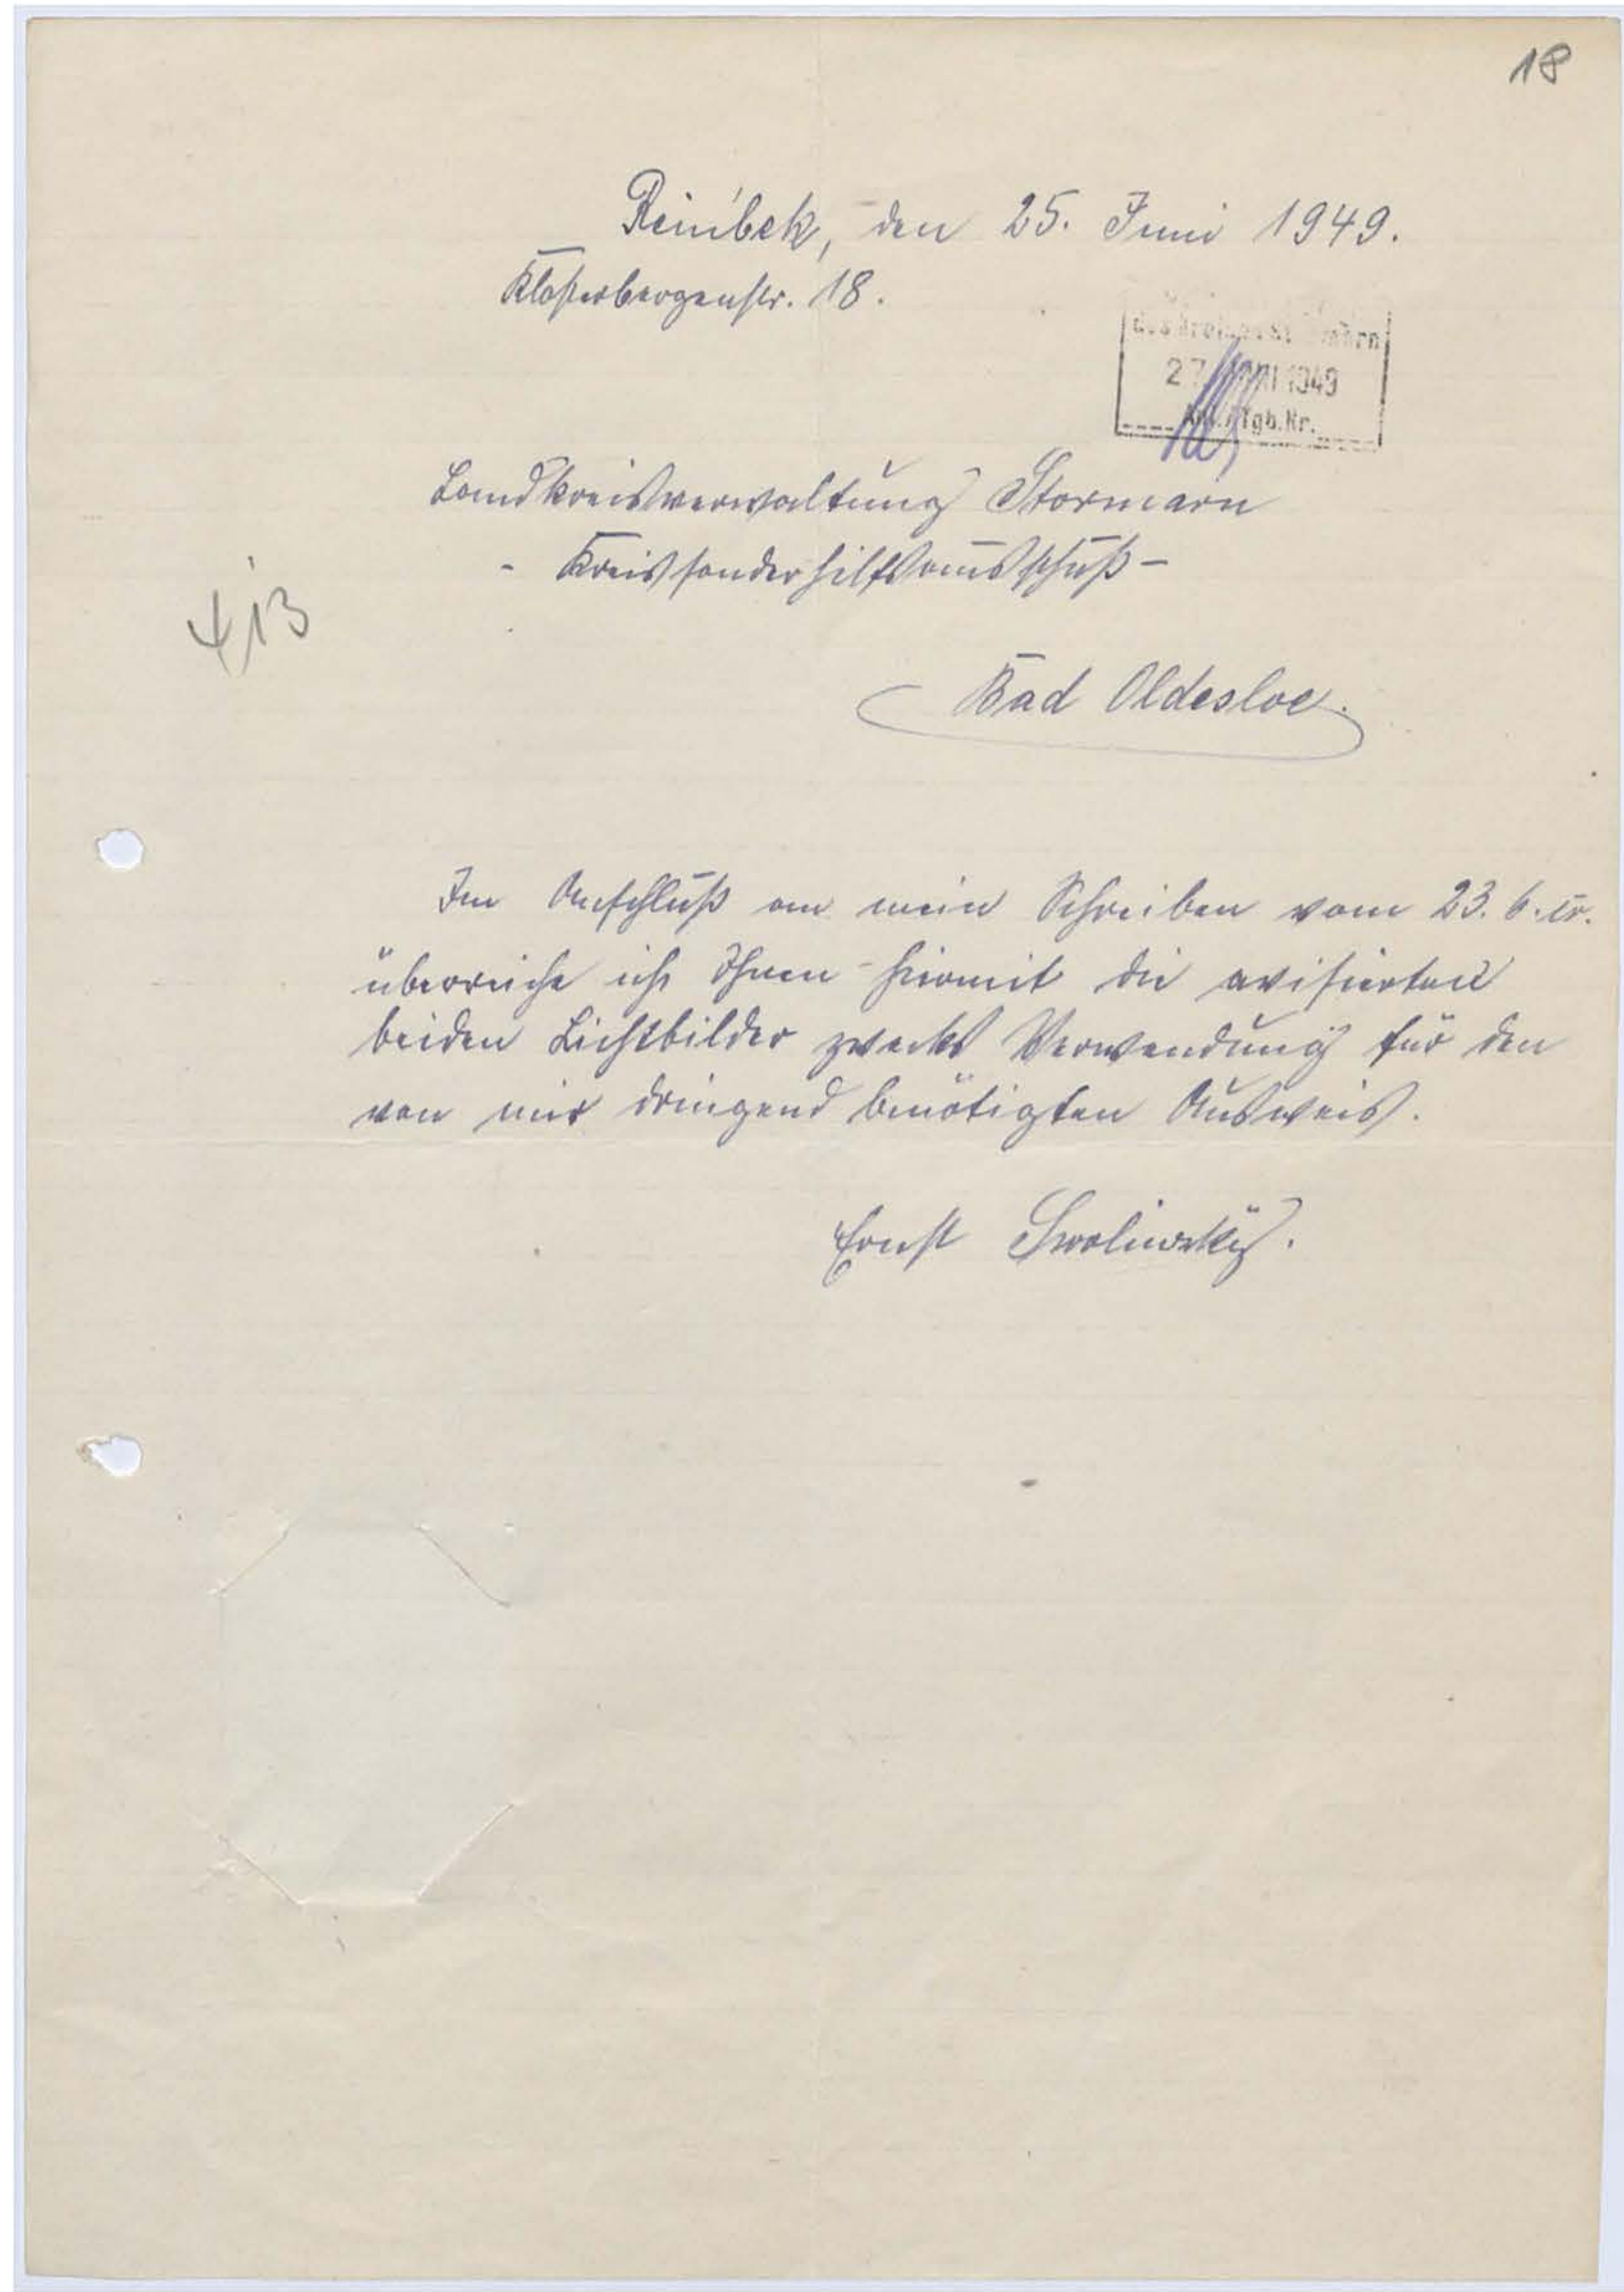 18
Reinbek, den 25. Juni 1949.
Klosterbergenstr. 18.
des Kreises
27. JUNI 1949
Tgb.Nr.
Landkreisverwaltung Stormarn
- Kreissonderhilfsausschuß -
413
Bad Oldesloe.
Im Anschluß an mein Schreiben vom 23. 6. cr.
überreiche ich Ihnen hiermit die avisierten
beiden Lichtbilder zwecks Verwendung für den
von mir dringend benötigten Ausweis.
Ernst